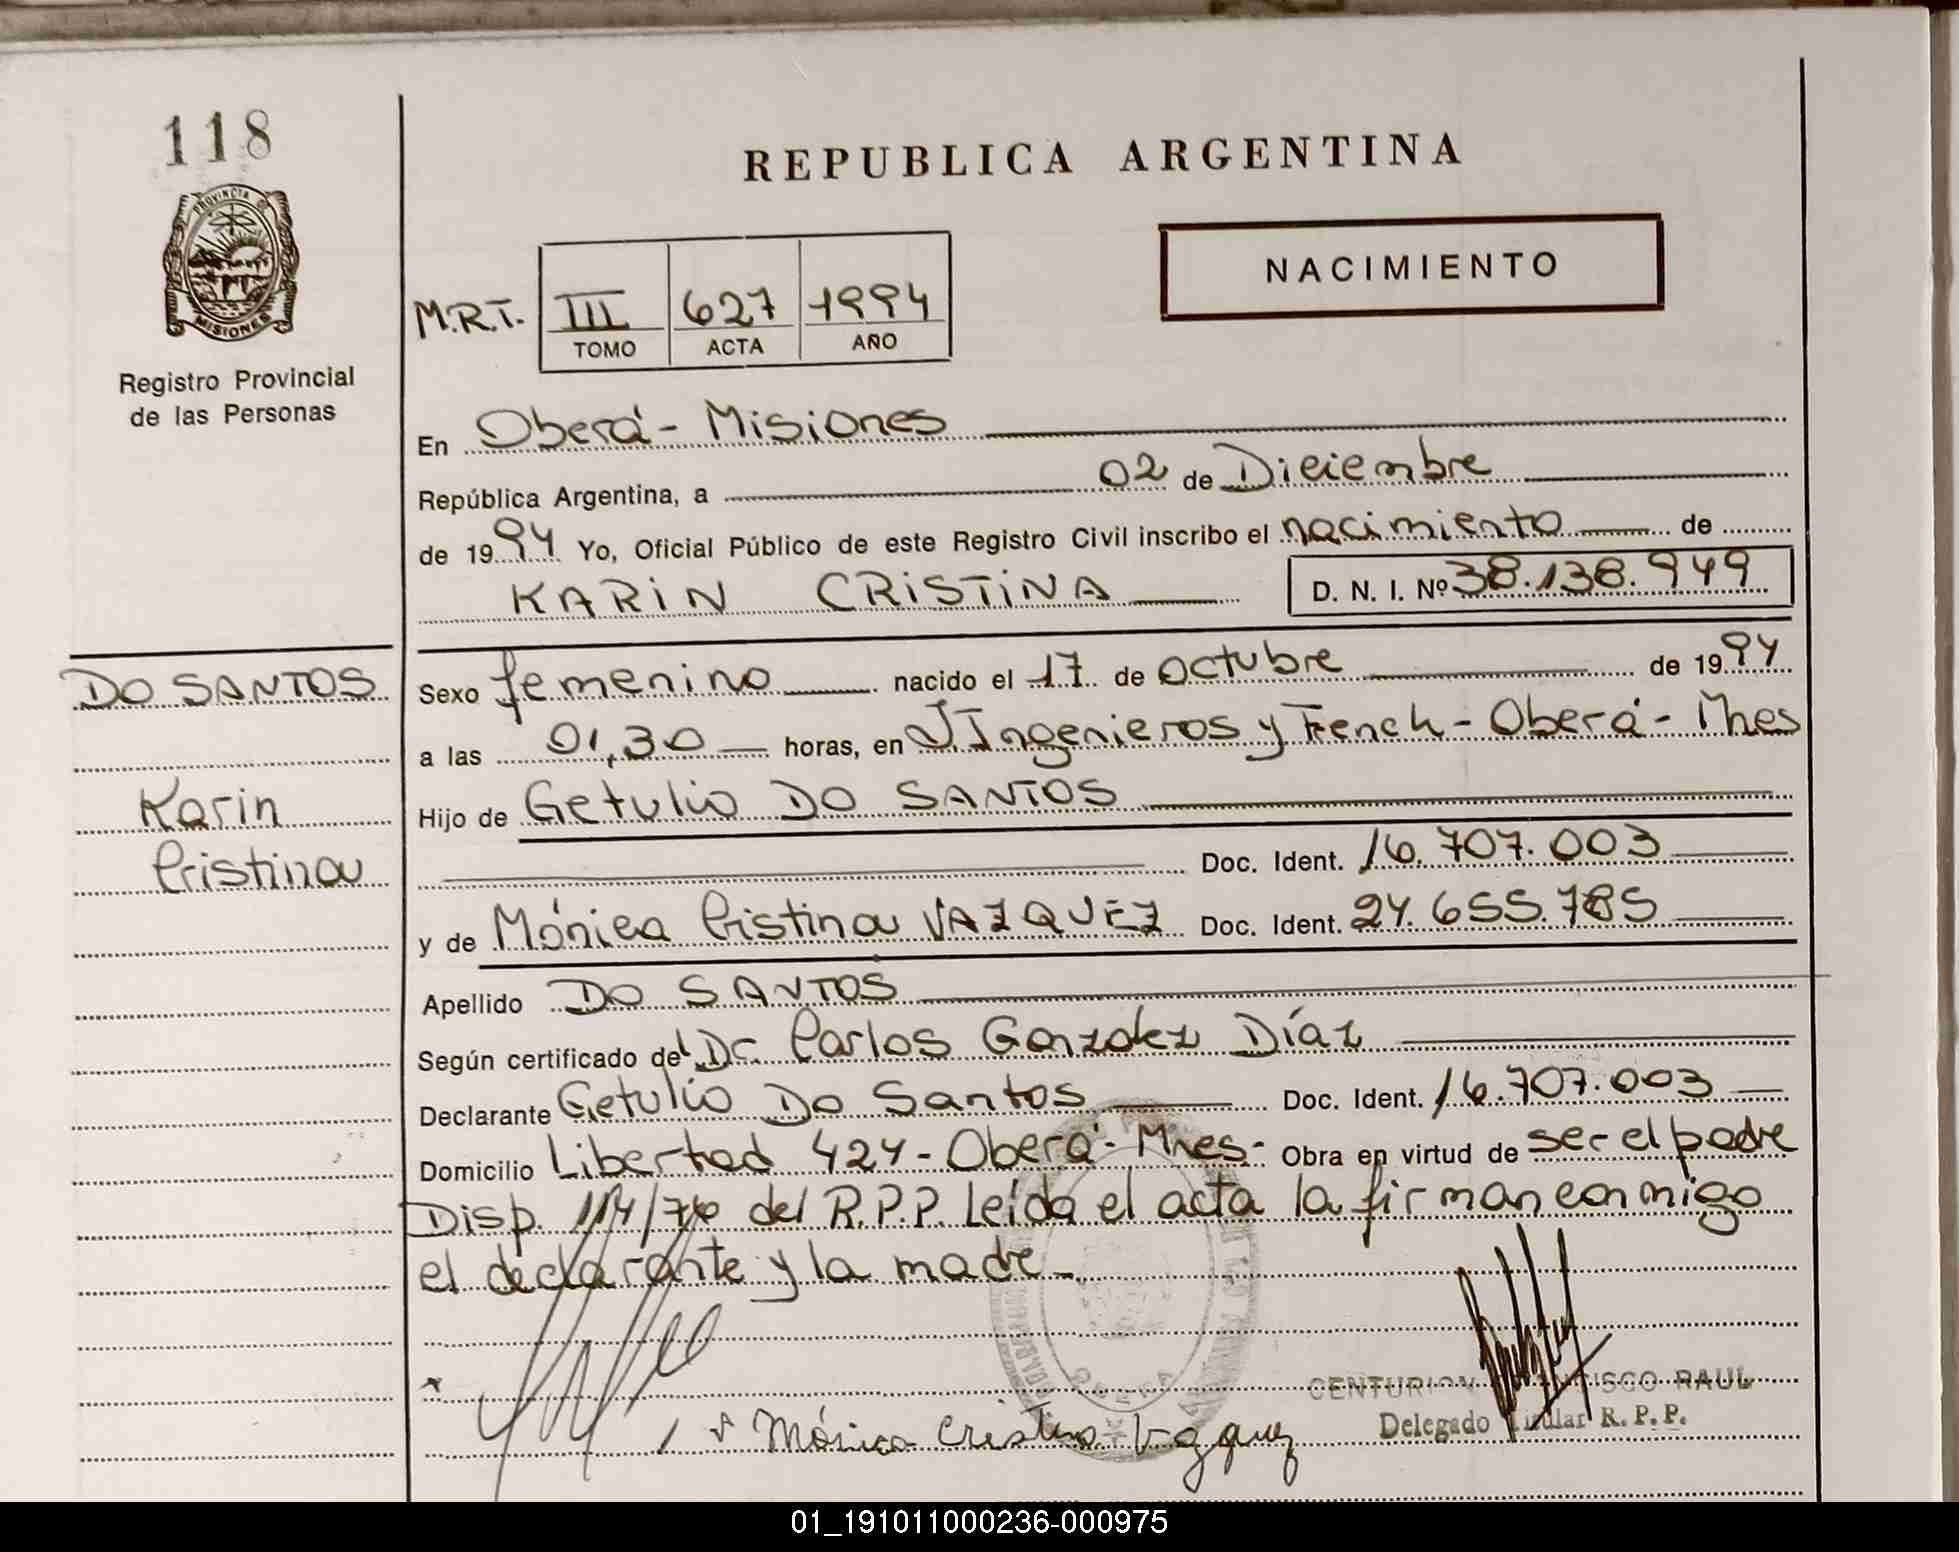 118
PROVINCIA D
MISIONES
Registro Provincial
de las Personas
REPUBLICA ARGENTINA
NACIMIENTO
M.R.T. III 627 1994
TOMO ACTA AÑO
En Oberá - Misiones
República Argentina, a 02 de Diciembre
de 1994 Yo, Oficial Público de este Registro Civil inscribo el nacimiento de
KARIN CRISTINA D. N. I. Nº 38.138.949
DO SANTOS
Karin
Cristina
Sexo femenino nacido el 17 de octubre de 1994
a las 01,30 horas, en J. Ingenieros y French - Oberá - Mnes
Hijo de Getulio DO SANTOS
Doc. Ident. 16.707.003
y de Mónica Cristina VAZQUEZ Doc. Ident. 24.655.785
Apellido DO SANTOS
Según certificado del Dr. Carlos Gonzalez Díaz
Declarante Getulio Do Santos Doc. Ident. 16.707.003
Domicilio Libertad 424 - Oberá - Mnes - Obra en virtud de ser el padre
Disp. 114/76 del R.P.P. Leída el acta la firman conmigo
el declarante y la madre -
Mónica Cristina Vazquez
CENTURION RAUL
Delegado Titular R. P. P.
OBERA
01_191011000236-000975